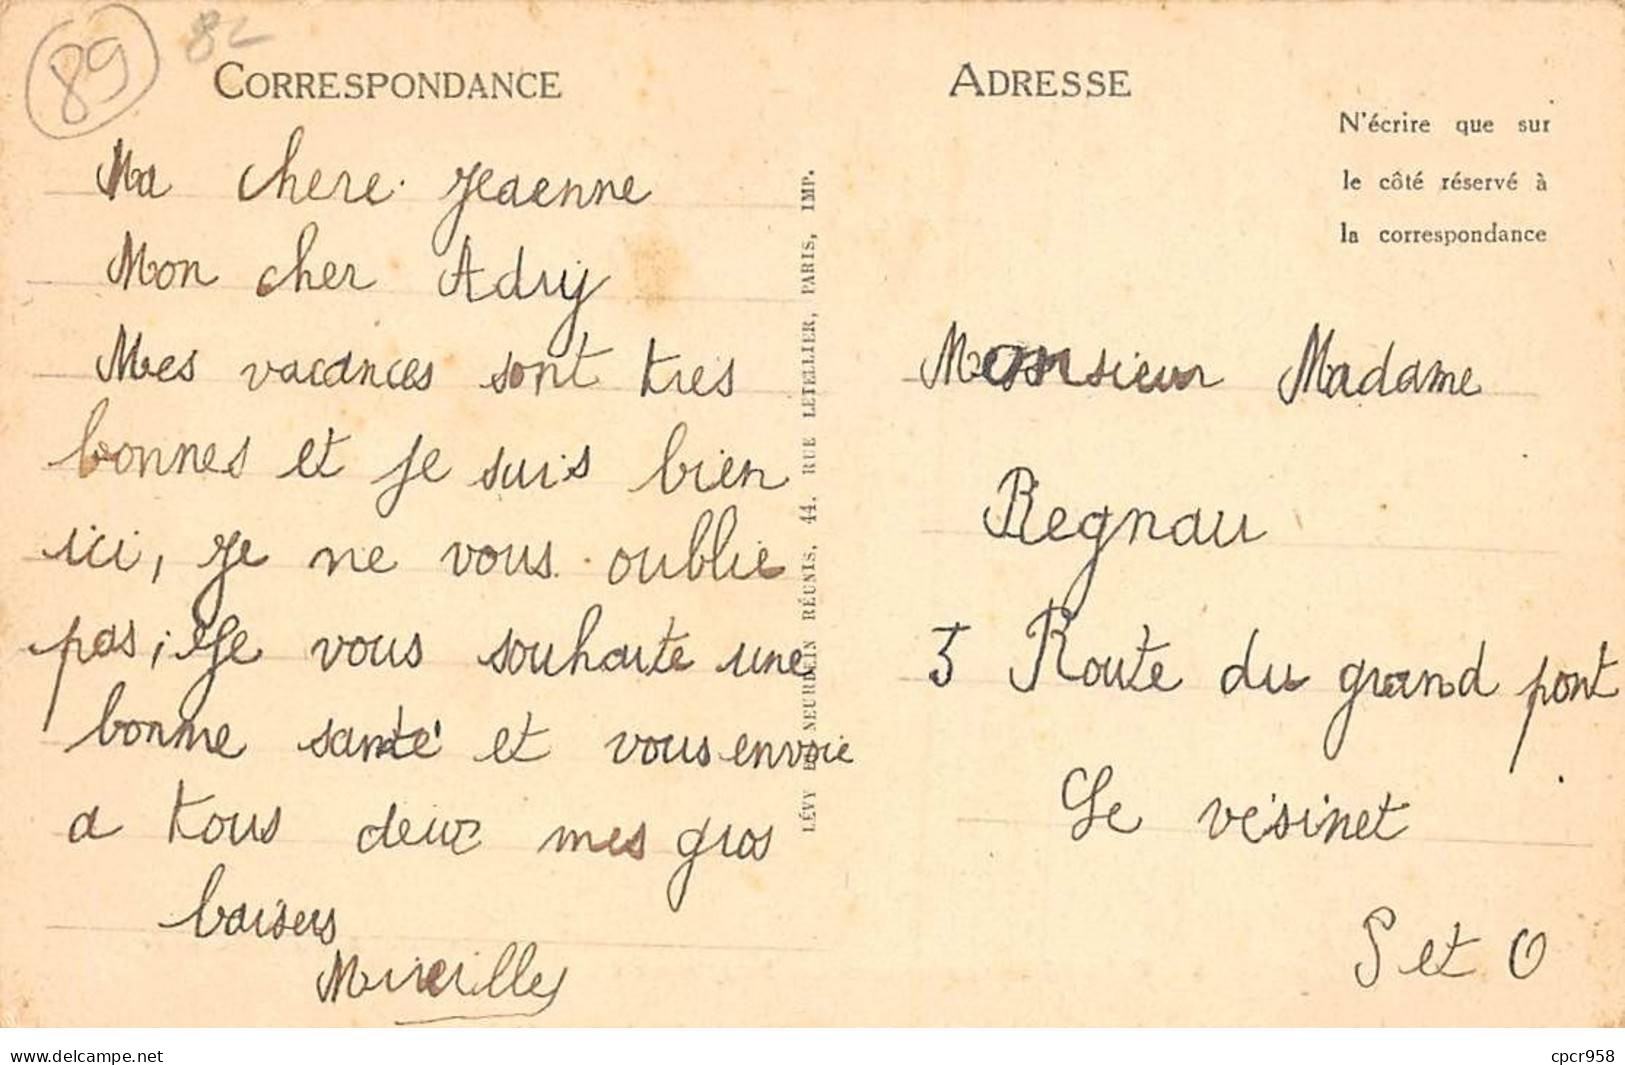 89
82
CORRESPONDANCE
Ma chere Jeaenne
Mon cher Adry
Mes vacances sont tres
bonnes et je suis bien
ici, je ne vous oublie
pas, Je vous souhaite une
bonne santé et vous envoie
a tous deux mes gros
baisers
Mireille
LÉVY ET NEURDEIN RÉUNIS, 44, RUE LETELLIER, PARIS, IMP.
ADRESSE
N'écrire que sur
le côté réservé à
la correspondance
Monsieur Madame
Regnau
5 Route du grand pont
Le vésinet
S et O
www.delcampe.net
cpcr958